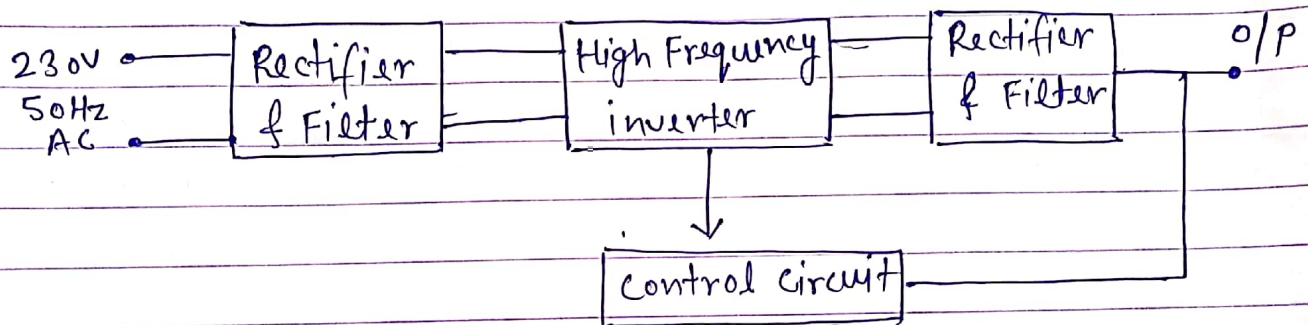 230V
50Hz
AC
Rectifier
& Filter
High Frequency
inverter
Rectifier
& Filter
O/P
Control Circuit